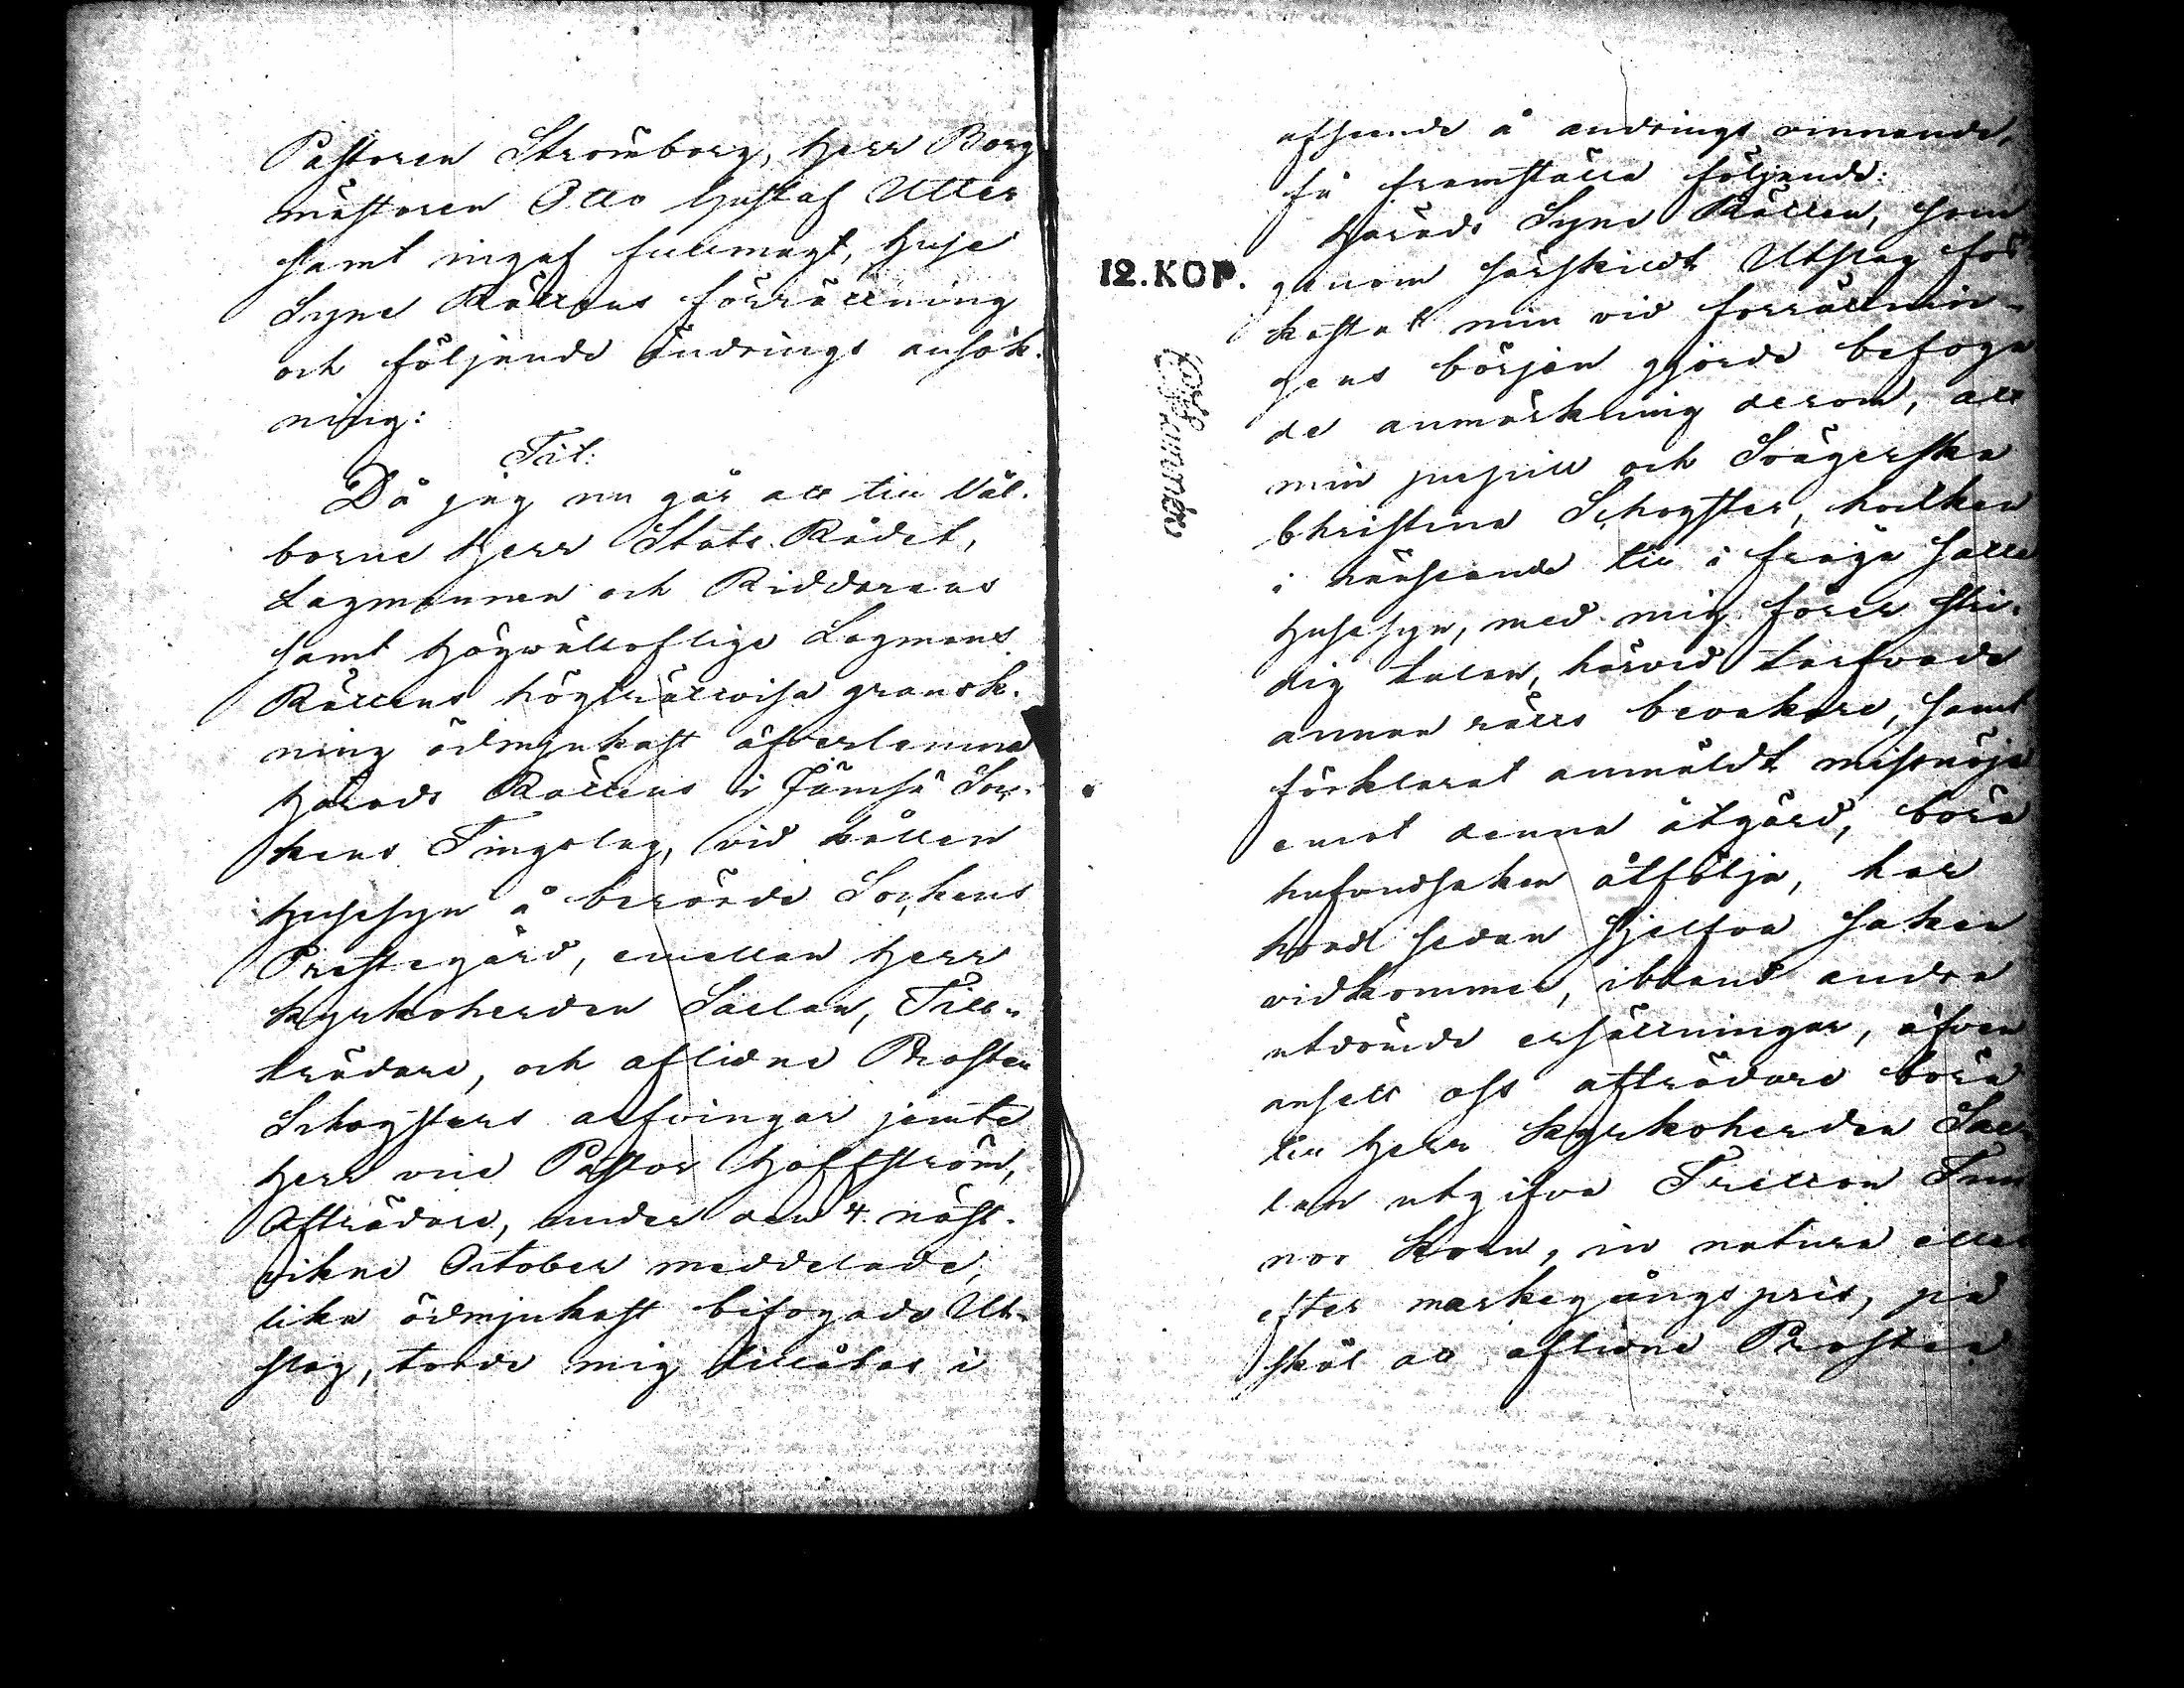 Pastoren Strömborg, Herr Borg
mästaren Otto Gustaf Utter
samt ingaf fullmagt, Huse
Syne Rättens förrättning
och följande ändrings ansök-
ning:
Tit:
Då jag nu går att till Väl-
borne Herr Stats Rådet,
Lagmannen och Riddarens
samt Högwällofliga Lagmans
Rättens högträttvisa gransk-
ning ödmjukast öfverlemna
Härads Rättens i Jämsä Soc-
kens Tingslag, vid hållen
Husesyn å berörde Sockens
Prestegård, emellan Herr
Kyrkoherden Saelan, Till-
trädare, och aflidne Prosten
Schogsters arfvingar jemte
Herr vice Pastor Hoffström,
Afträdare, under den 4. näst-
vikne October meddelade,
lika ödmjukast bifogade Ut-
slag, torde mig tillåtas i
afseende å ändrings vinnande,
få framställa följande:
Härads Syne Rätten, som
12. KOP.
genom särskildt Utslag för-
kastat min vid förrättnin-
gens början gjorde befoga
de anmärkning derom, att
min pupill och Svägerska
Christina Schogster, hvilken
i anseende till i fråga satte
Husesyn, med mig förer stri-
dig talan, härvid tarfvade
annan rätts bevakare, samt
förklarat anmäldt missnöje
emot denna åtgärd, böra
hufvudsaken åtfölja, har
hvad sedan sjelfva saken
vidkommer, ibland andra
utdömde ersättningar, äfven
ansett oss afträdare böra
till Herr Kyrkoherden Sae-
lan utgifva Trettio Tun
nor Korn, in natura eller
efter markegångs pris, på
skäl att aflidne Prosten